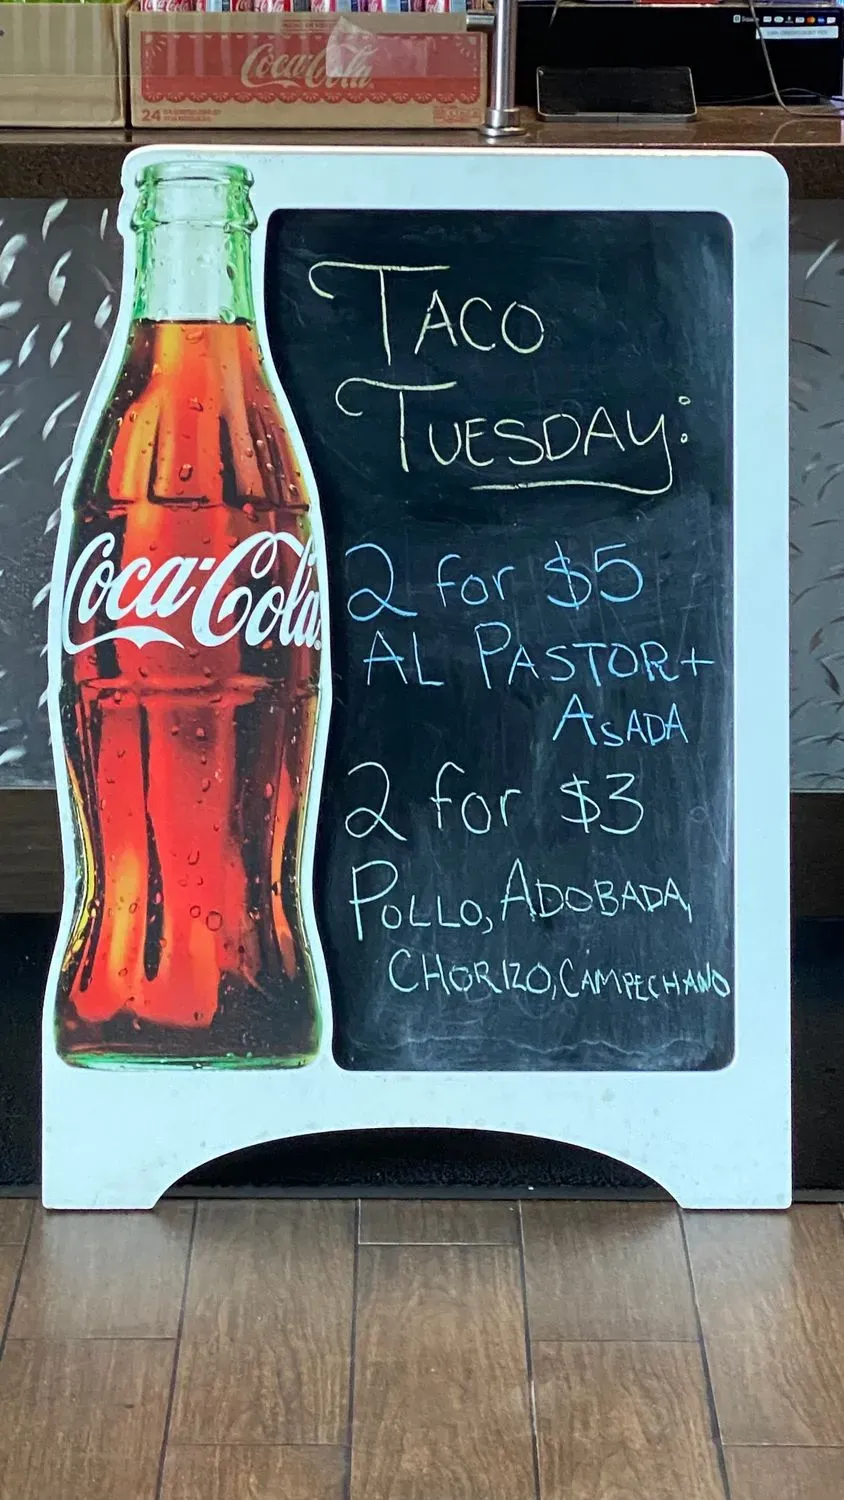 Coca-Cola
24
TACO
TUESDAY:
2 for $5
AL PASTOR+
ASADA
2 for $3
POLLO, ADOBADA,
CHORIZO, CAMPECHANO
Coca-Cola